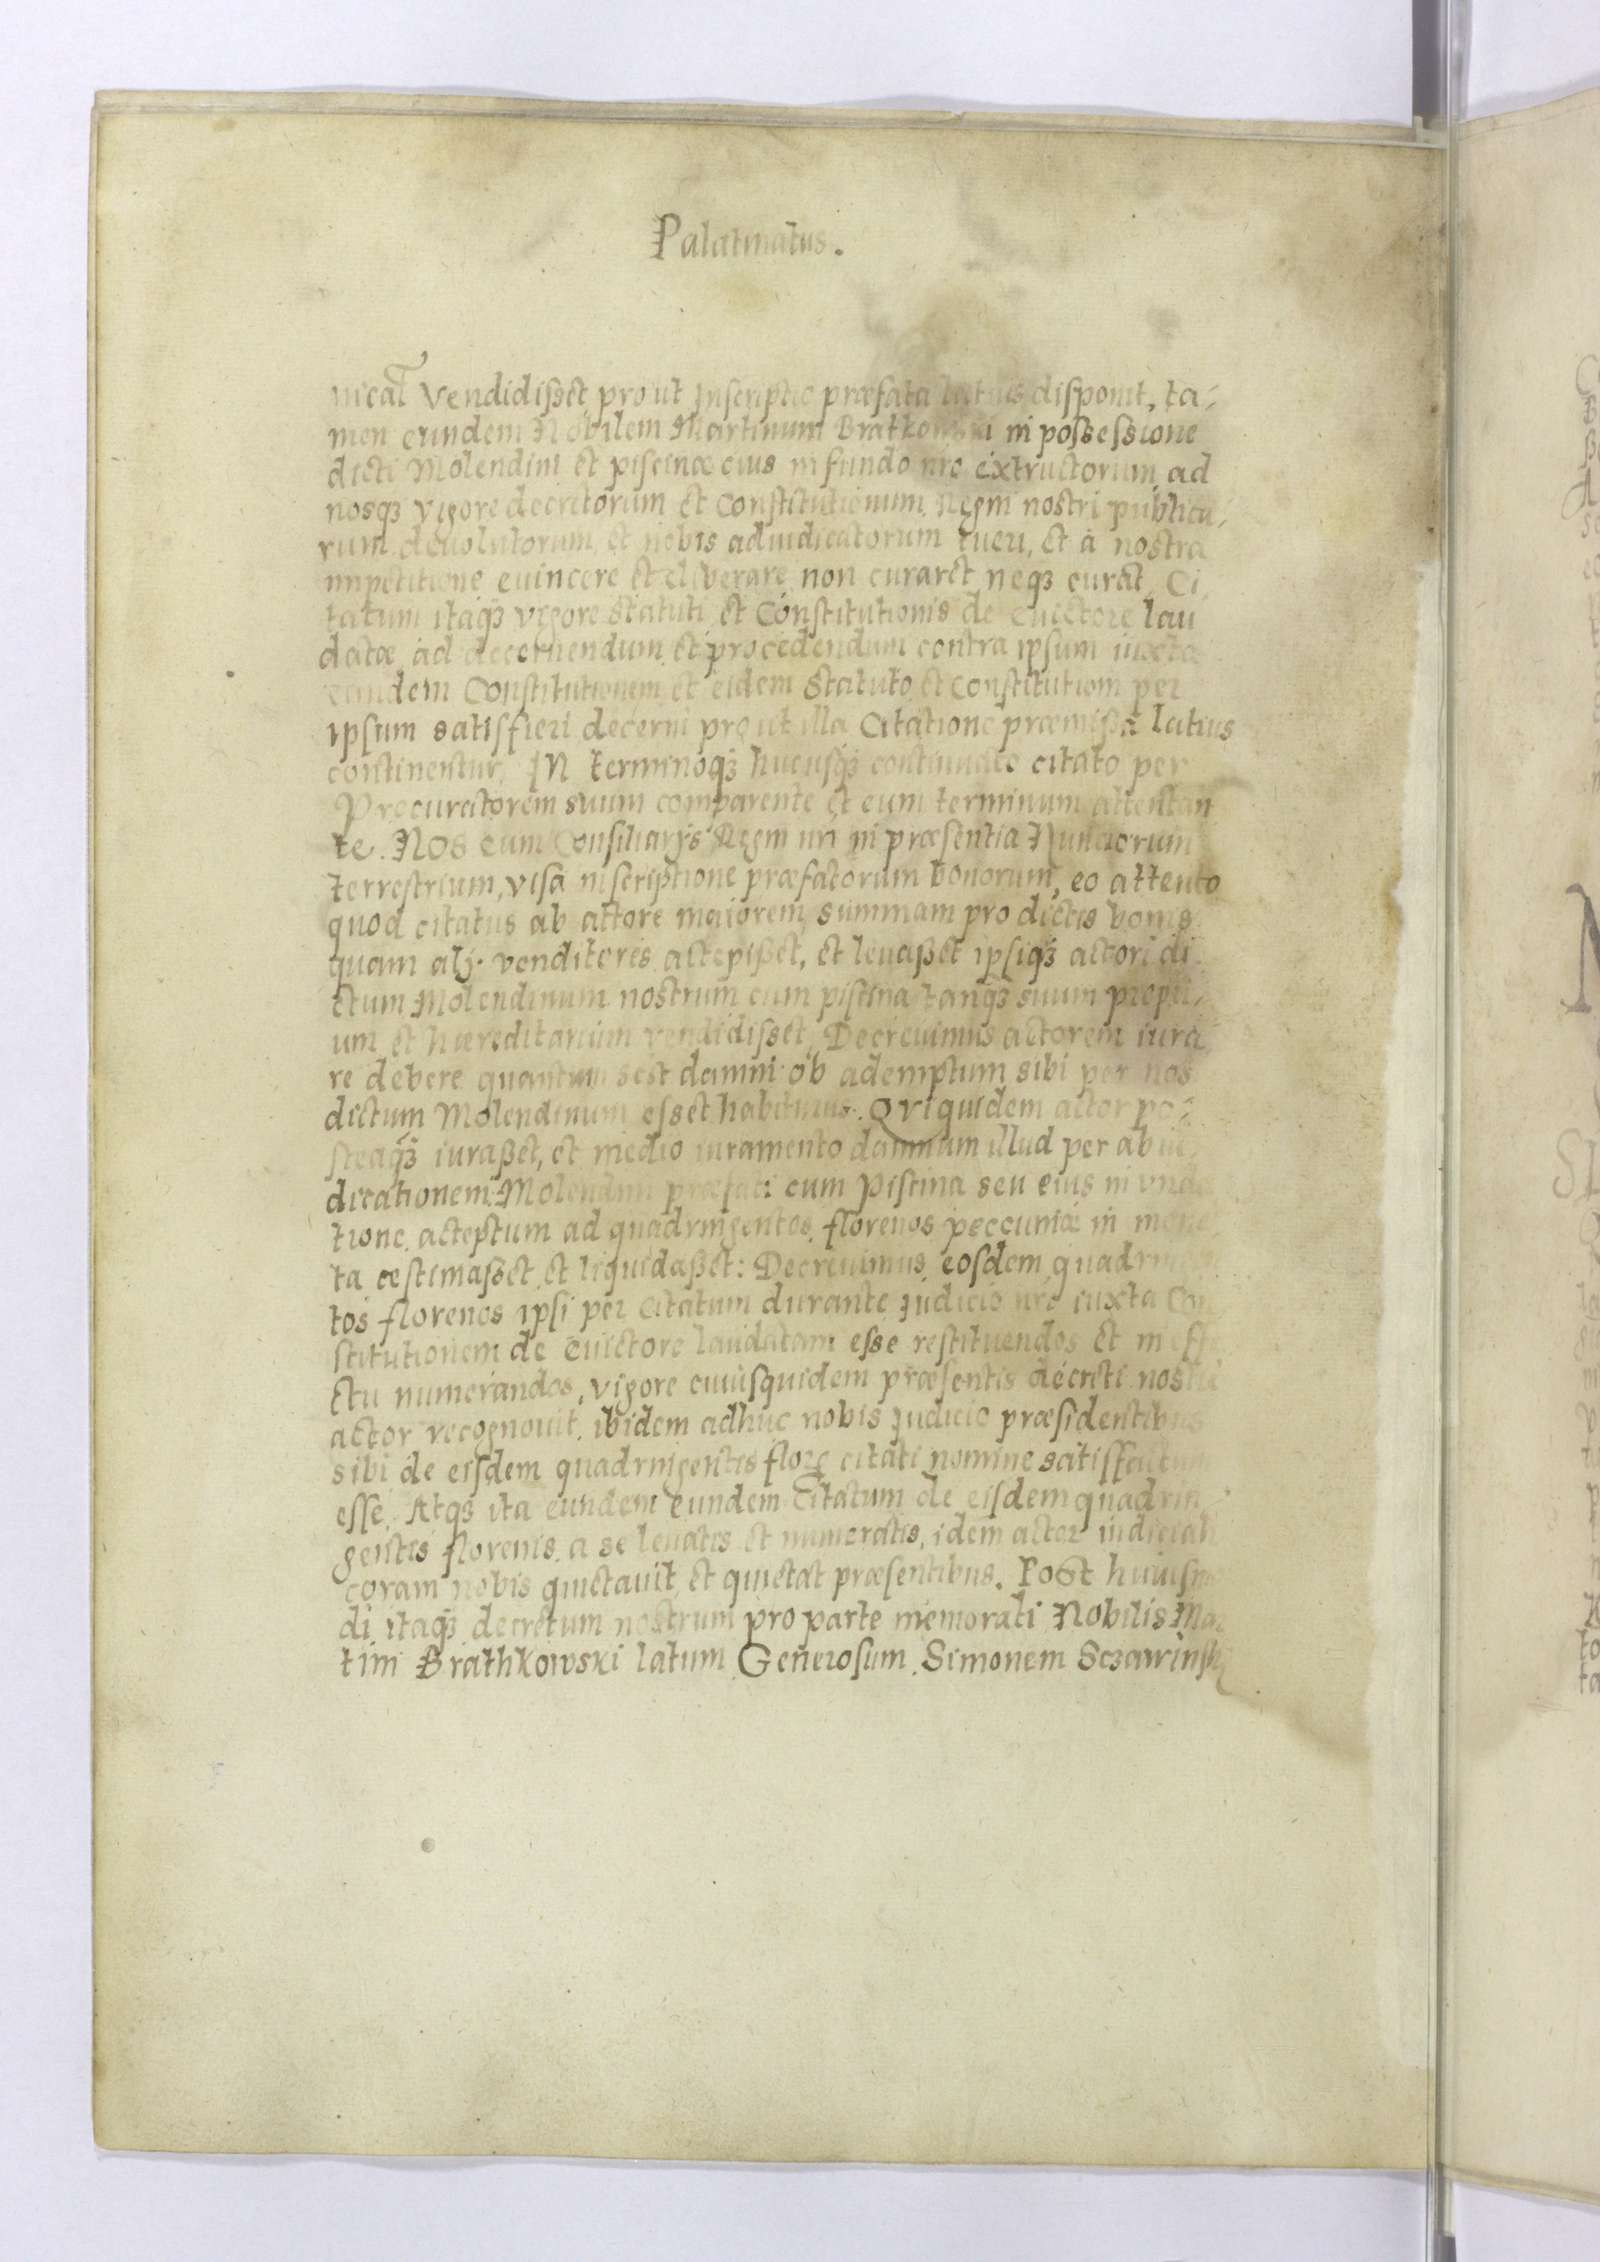 Palatinatus.
nicat vendidisset, prout Inscriptio præfata latius disponit, ta-
men eundem Nobilem Martinum Bratkowski in possessione
dicti Molendini et piscinæ eius in fundo nro extructorum, ad
nosq3 vigore decretorum et Constitutionum Regni nostri publica-
rum deuolutorum, et nobis adiudicatorum tueri, et à nostra
impetitione euincere et eliberare non curaret neq3 curat, Ci-
tatum itaq3 vigore Statuti et Constitutionis de Euictore lau
datæ ad decernendum et procedendum contra ipsum iuxta
eandem Constitutionem et eidem Statuto et Constitutioni per
ipsum satisfieri decerni prout illa Citatione præmissa latius
continentur. In terminoq3 hucusq3 continuato citato per
Procuratorem suum comparente et eum terminum attentan
te. Nos cum Consiliarijs Regni nri in præsentia Nunciorum
terrestrium, visa inscriptione præfatorum bonorum, eo attento
quod citatus ab actore maiorem summam pro dictis bonis
quam alij venditores accepisset, et leuasset ipsiq3 actori di
ctum Molendinum nostrum cum piscina tanq3 suum propri-
um et hæreditarium vendidisset, Decreuimus actorem iura
re debere quantum sest damni ob ademptum sibi per nos
dictum Molendinum esset habiturus. Qui quidem actor po-
steaq3 iurasset, et medio iuramento damnum illud per abiu
dicationem Molendini præfat: cum Piscina seu eius in vnda
tione acceptum ad quadringentos florenos peccuniæ in mone
ta æstimasset et liquidasset: Decreuimus eosdem quadringen
tos florenos ipsi per Citatum durante Iudicio nro iuxta Con
stitutionem de Euictore laudatam esse restituendos et in effe
ctu numerandos, vigore cuiusquidem præsentis decreti nostri
actor recognouit ibidem adhuc nobis Iudicio præsidentibus
sibi de eisdem quadringentis flore citati nomine satisfactum
esse. Atq3 ita eundem eundem Citatum de eisdem quadrin-
gentis florenis a se leuatis et numeratis, idem actor iudiciali
coram nobis quietauit et quietat præsentibus. Post huiusmo
di itaq3 decretum nostrum pro parte memorati Nobilis Mar
tini Brathkowski latum Generosum Simonem Sczawinski